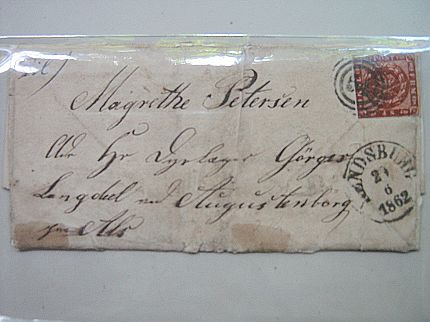 Til
Magrethe Petersen
Adr Hr Dyrlæge Görges
Langdel ved Augustenborg
paa Als
RENDSBURG
6
1862